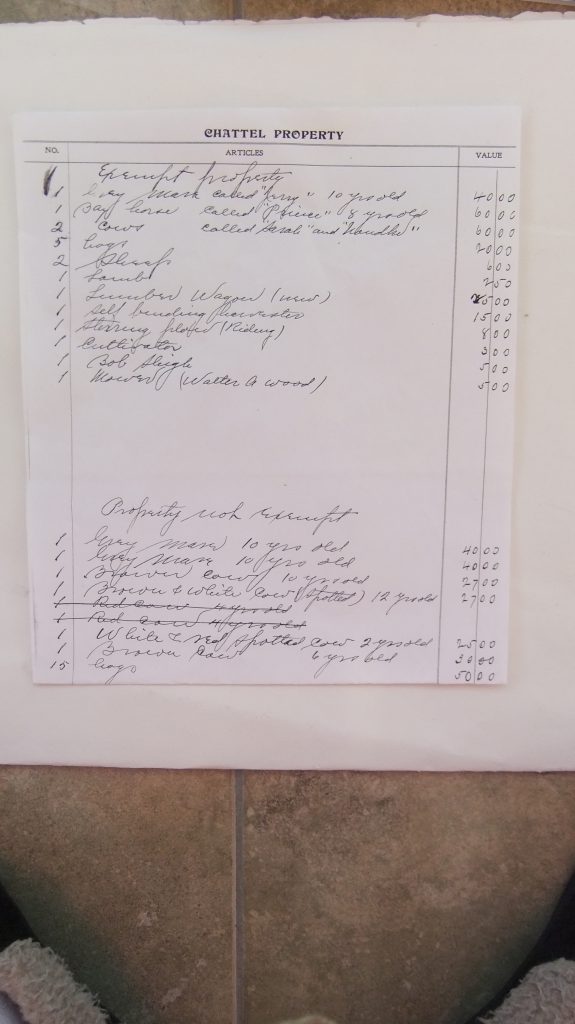 CHATTEL PROPERTY
NO. ARTICLES VALUE
Exempt property
1 Grey Mare called 10 yrs old 40 00
1 Bay horse called "Prince" 8 yrs old 60 00
2 Cows called "Sarah" and 60 00
5 hogs 20 00
2 Sheep 6 00
1 Lamb 2 50
1 Lumber Wagon (new) 5 00
1 Self binding harvester 15 00
1 Stirring plow (Riding) 8 00
1 Cultivator 3 00
1 Bob Sleigh 5 00
1 Mower (Walter A Wood) 5 00
Property not Exempt
1 Grey Mare 10 yrs old 40 00
1 Grey Mare 10 yrs old 40 00
1 Brown Cow 10 yrs old 27 00
1 Brown & White Cow (Spotted) 12 yrs old 27 00
1 Red Cow 4 yrs old
1 Red Cow 4 yrs old
1 White & red Spotted Cow 2 yrs old 25 00
1 Brown Cow 6 yrs old 30 00
15 hogs 50 00